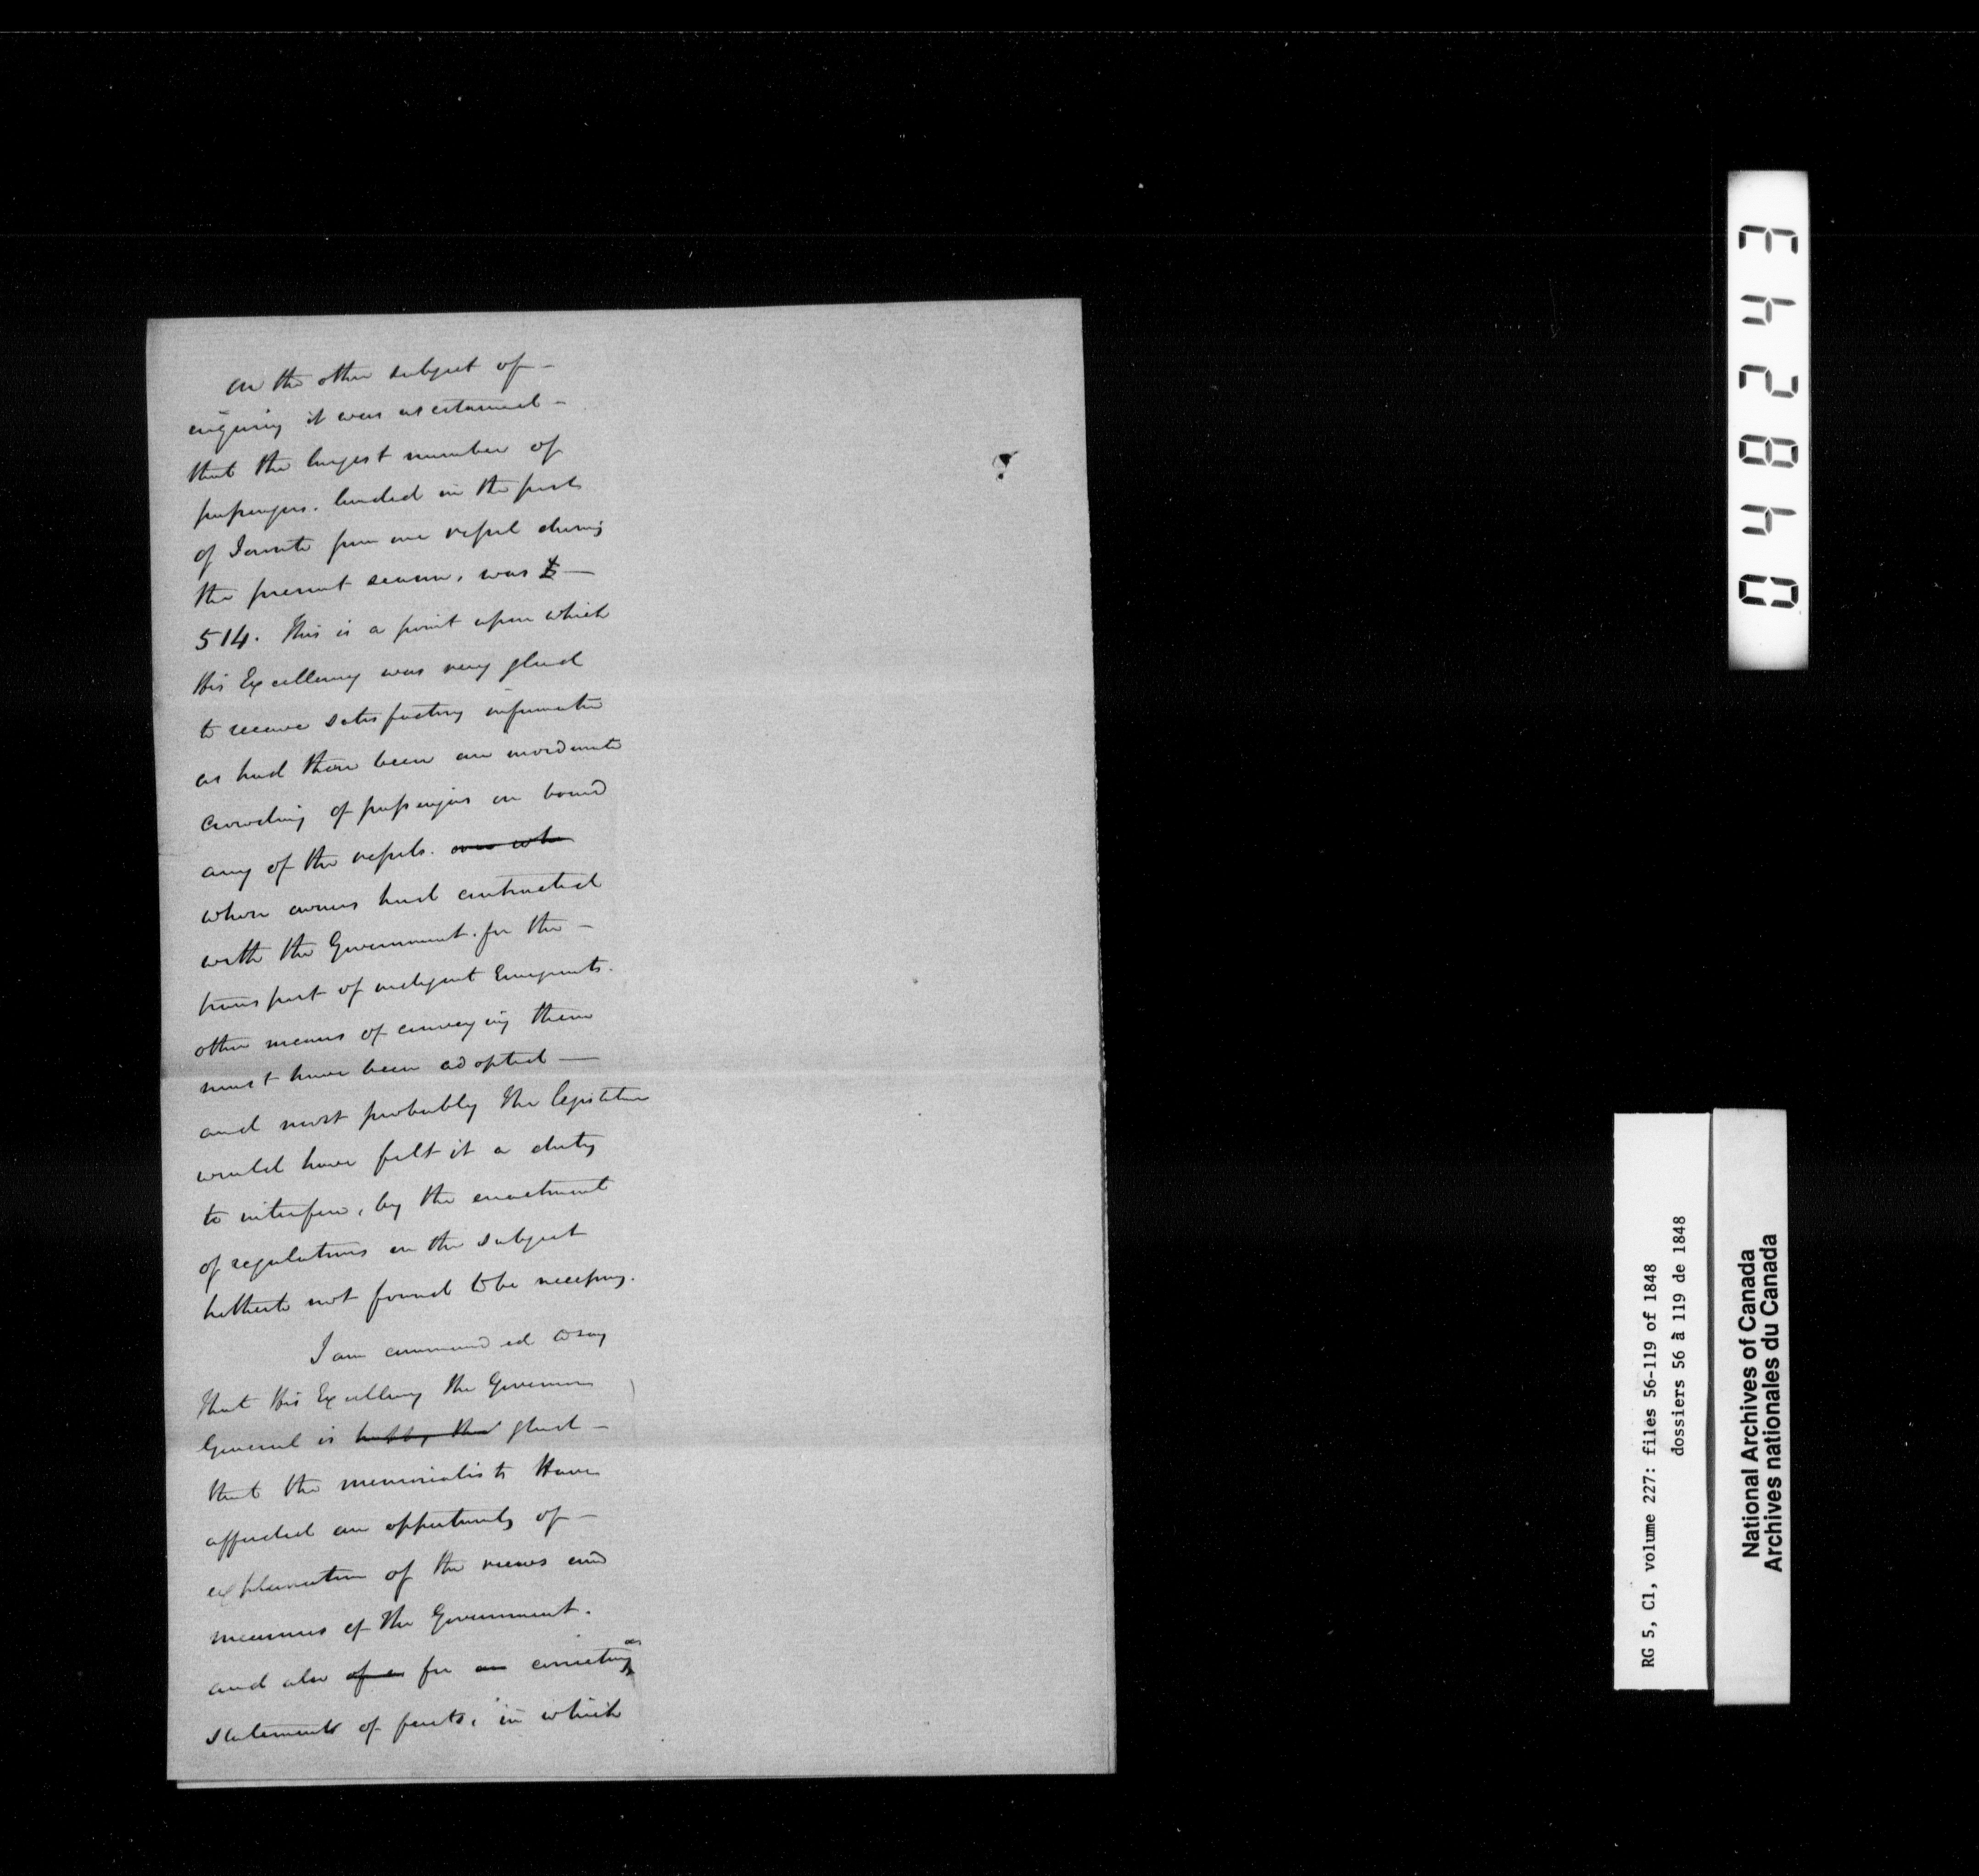 On the other subject of –
inquiry it was ascertained –
that the largest number of
passengers landed in the port
of Toronto from one vessel during
the present season, was
514. This is a point upon which
His Excellency was very glad
to receive satisfactory information
as had there been an inordinate
crowding of passengers on board
any of the vessels.
whose owners had contracted
with the Government for the –
transport of indigent Emigrants.
other means of conveying them
must have been adopted —
and most probably the legislature
would have felt it a duty
to interfere, by the enactment
of regulations on the subject
hitherto not found to be necessary.
I am commanded to say
that His Excellency the Governor
General is happy that glad –
that the memorialists have
afforded an opportunity of –
explanation of the views and
measures of the Government.
and also of a for an correcting
statements of facts, in which
042843
RG 5, C1, volume 227: files 56-119 of 1848
dossiers 56 à 119 de 1848
National Archives of Canada
Archives nationales du Canada